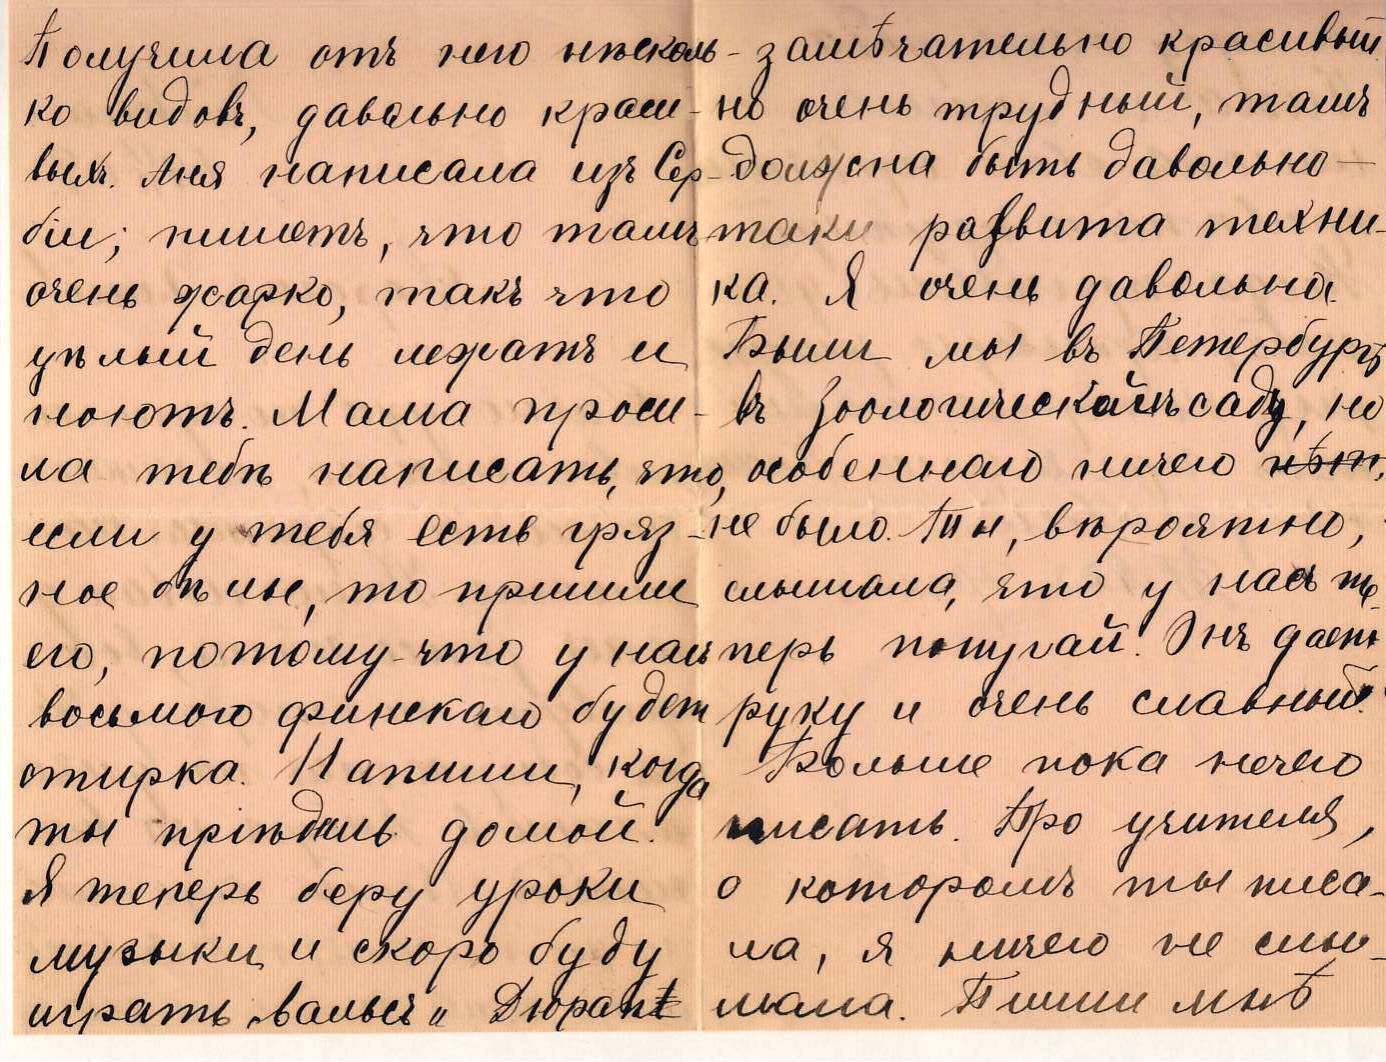 Получила отъ него нѣсколь-
ко видовъ, давольно краси-
выхъ. Аня написала изъ Сер-
біи; пишетъ, что тамъ
очень жарко, такъ что
цѣлый день лежатъ и
ноютъ. Мама проси-
ла тебѣ написать, что,
если у тебя есть гряз-
ное бѣлье, то пришли
его, потому-что у насъ
восьмого финскаго будет
стирка. Напиши, когда
ты пріѣдешь домой.
Я теперь беру уроки
музыки и скоро буду
играть „вальсъ“ Дюранt
замѣчательно красивый
но очень трудный, тамъ
должна быть давольно-
таки развита техни-
ка. Я очень давольна.
Были мы въ Петербургѣ
въ Зоологическомъ саду, но
особеннаго ничего нѣт,
не было. Ты, вѣроятно,
слышала, что у насъ те-
перь попугай. Онъ даетъ
руку и очень славный.
Больше пока нечего
писать. Про учителя,
о которомъ ты писа-
ла, я ничего не слы-
шала. Пиши мнѣ